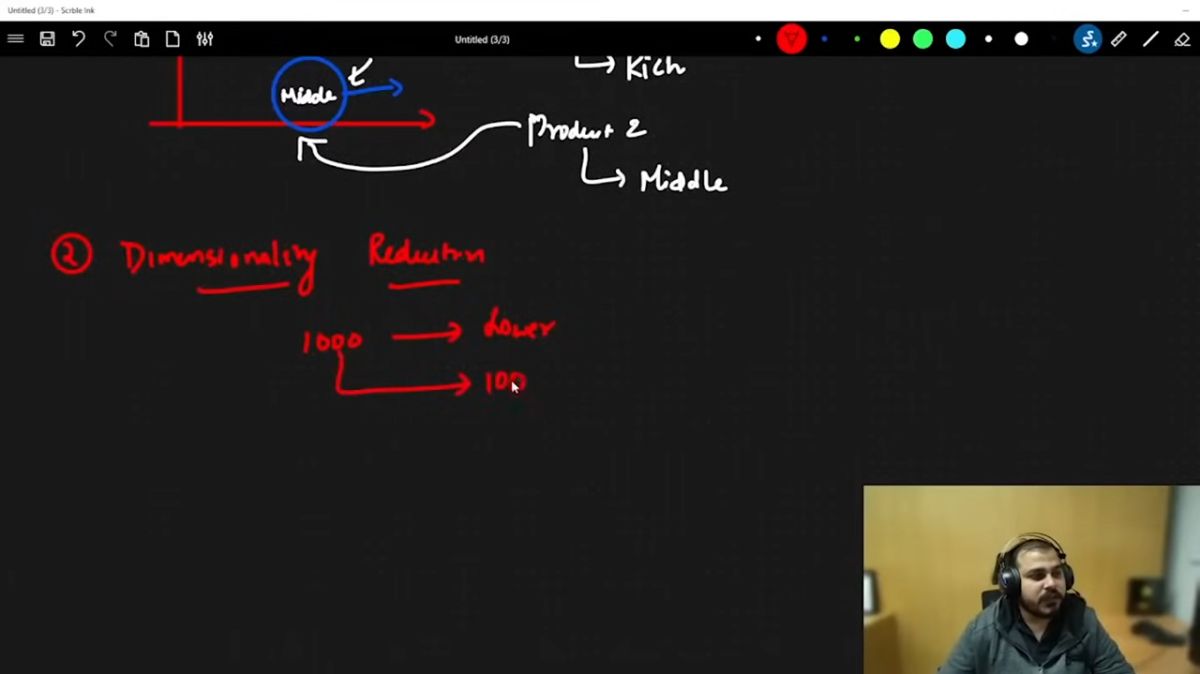 Untitled (3/3) - Scrble Ink
Untitled (3/3)
Middle
Rich
Product 2
Middle
2 Dimensionality Reduction
1000 → Lower
→ 100